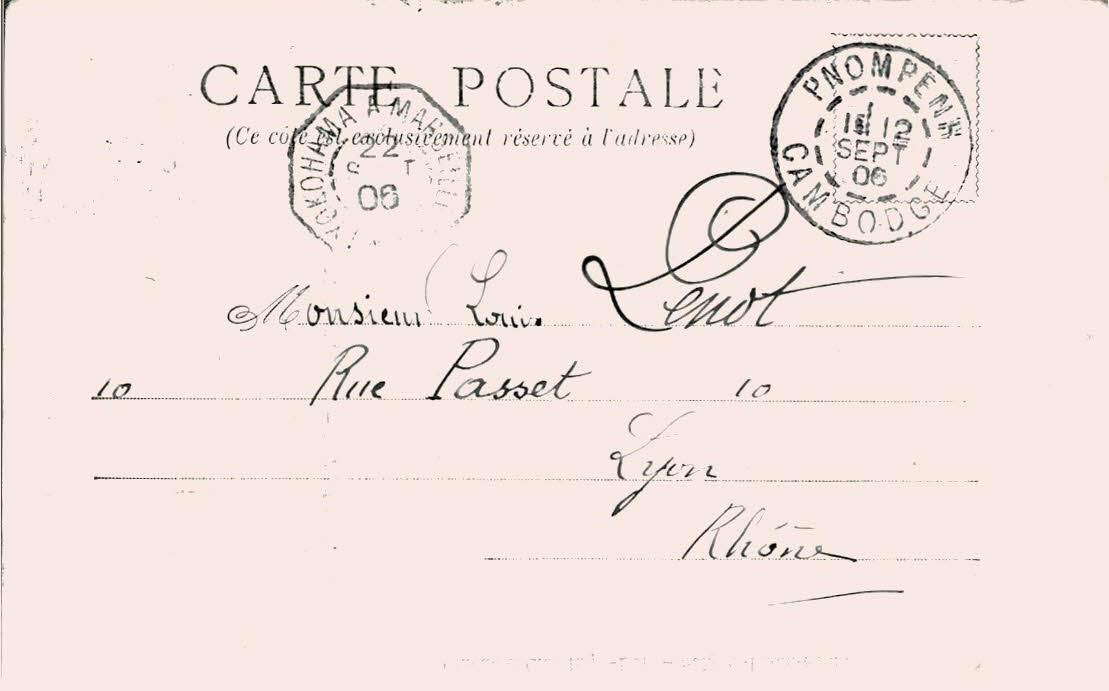 CARTE POSTALE
(Ce côté est exclusivement réservé à l'adresse)
PNOMPENH
12
SEPT
06
CAMBODGE
YOKOHAMA A MAR
22
06
Monsieur Louis Lenot
10 Rue Passet 10
Lyon
Rhône